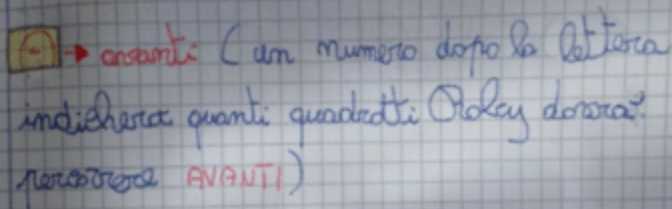 → avanti (un numero dopo la lettera
indicherà quanti quadretti Roley dovrà
percorrere AVANTI)